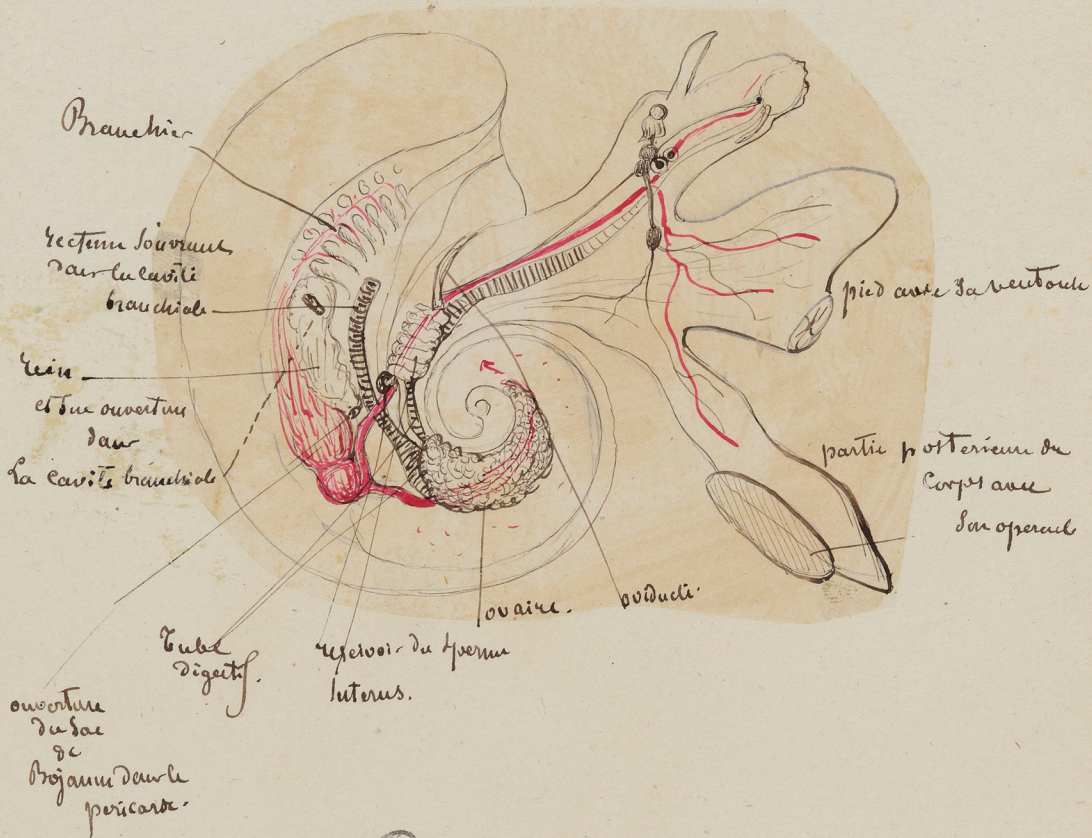 Branchies
rectum s'ouvrant
dans la cavité
branchiale
rein
et son ouverture
dans
La cavité branchiale
pied avec sa ventouse
partie posterieure du
corps avec
son opercule
ovaire.
oviducte.
Tube
digestif.
reservoir du sperme
Uterus.
ouverture
du sac
de
Bojanus dans le
pericarde.